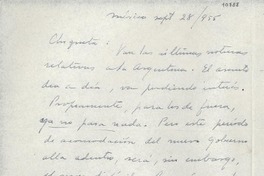 México sept 28/955
Chiquita: Van las últimas noticias
relativas a la Argentina. El asunto
día a día, va perdiendo interés.
Propiamente, para los de fuera,
ya no pasa nada. Pero este período
de acomodación del nuevo Gobierno
allá adentro, será, sin embargo,